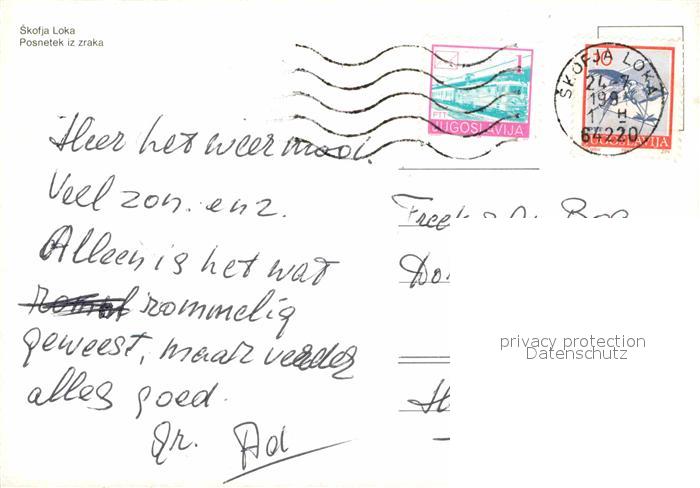 Škofja Loka
Posnetek iz zraka
1
PTT
JUGOSLAVIJA
ŠKOFJA LOKA
10
64220
JUGOSLAVIJA
Hier het weer mooi.
Veel zon. enz.
Alleen is het wat
rommelig
geweest, maar verder
alles goed.
Gr. Ad
privacy protection
Datenschutz